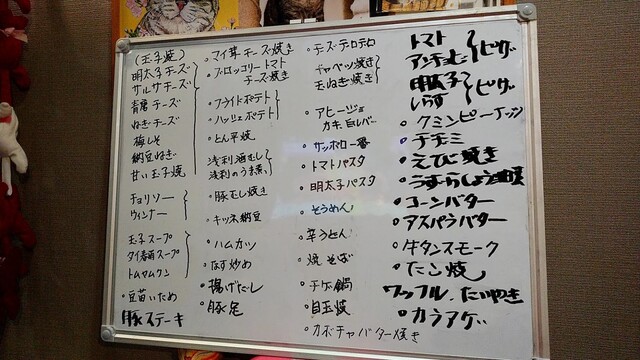 (玉子焼)
明太子チーズ
サルサチーズ
青唐チーズ
ねぎチーズ
梅しそ
納豆ねぎ
甘い玉子焼
チョリソー
ウィンナー
玉子スープ
タイ春雨スープ
トムヤムクン
・豆苗いため
豚ステーキ
・マイ茸チーズ焼き
・ブロッコリートマト
チーズ焼き
・フライドポテト
・ハッシュポテト
・とん平焼
浅利酒むし
浅利のうま煮
・豚むし焼き
・キツネ納豆
・ハムカツ
・なす炒め
・揚げだし
・豚足
・チーズテロテロ
キャベツ焼き
玉ねぎ焼き
・アヒージョ
カキ、白レバー
・サッポロ一番
・トマトパスタ
・明太子パスタ
・そうめん
・辛うどん
・焼そば
・チゲ鍋
・目玉焼
・カボチャバター焼き
トマト
アンチョビ
ピザ
明太子
しらす
ピザ
・クミンピーナッツ
・チヂミ
・えてじ焼き
・コーンバター
・アスパラバター
・牛タンスモーク
・たこ焼
ワッフル、たいやき
・カラアゲ